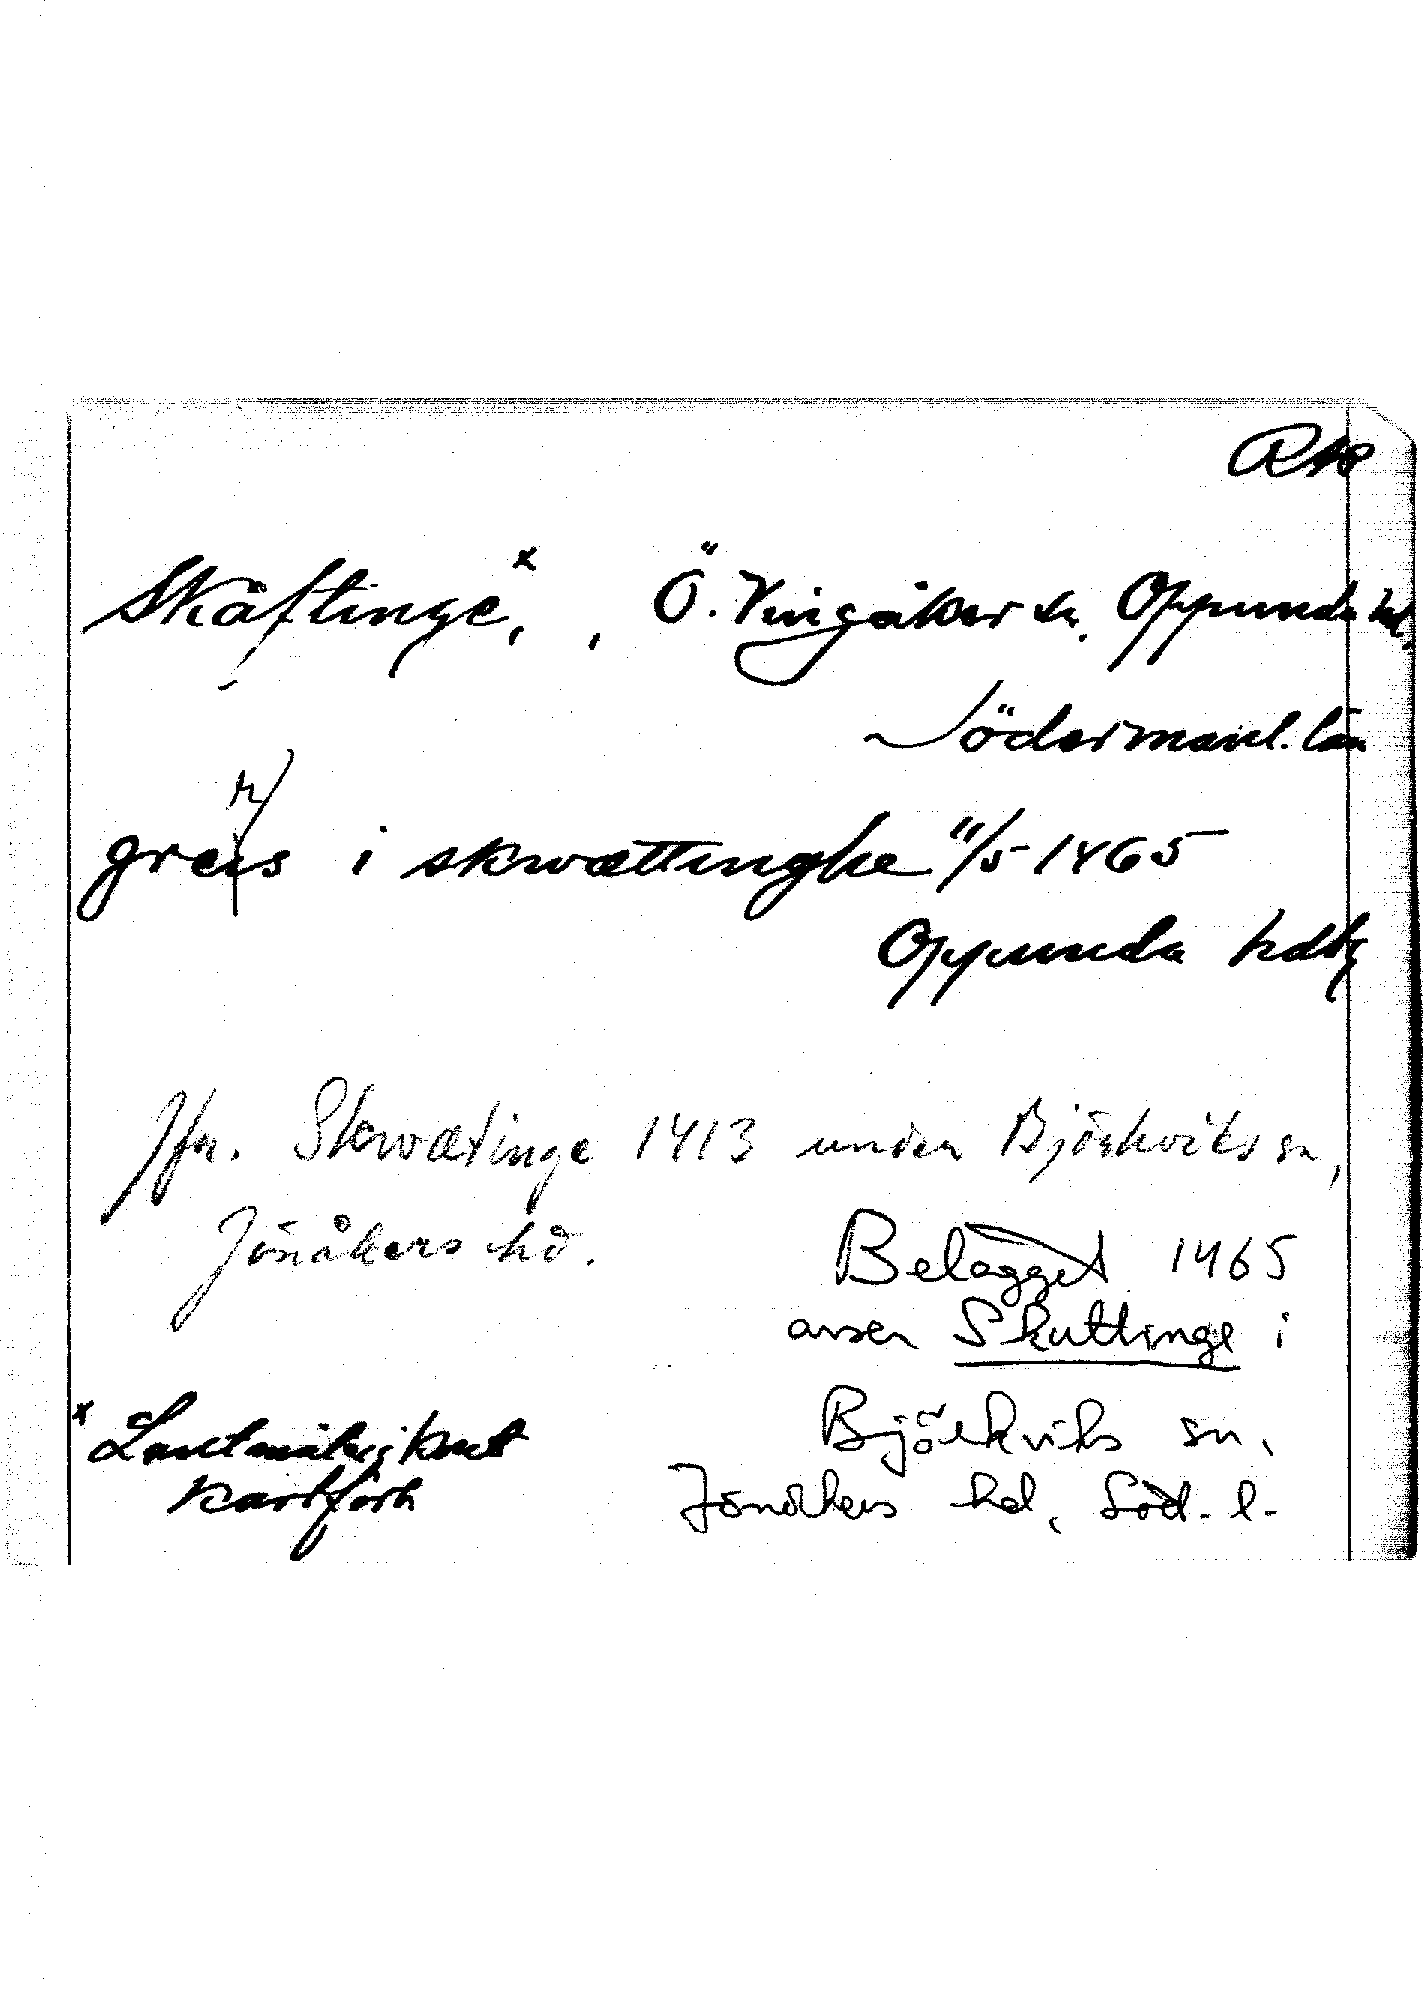 Skäftinge,ˣ , Ö. Vingåker sn. Oppunda hd,
Södermanl. län
greis i skwættinghe 11/5 1465
Oppunda hdbr
Jfr. Skwætinge 1413 under Björkviks sn,
Jönåkers hd.
Belägget 1465
avser Skuttinge i
Björkviks sn,
Jönåkers hd, Söd. l.
x Lantmäterikont
kartförh